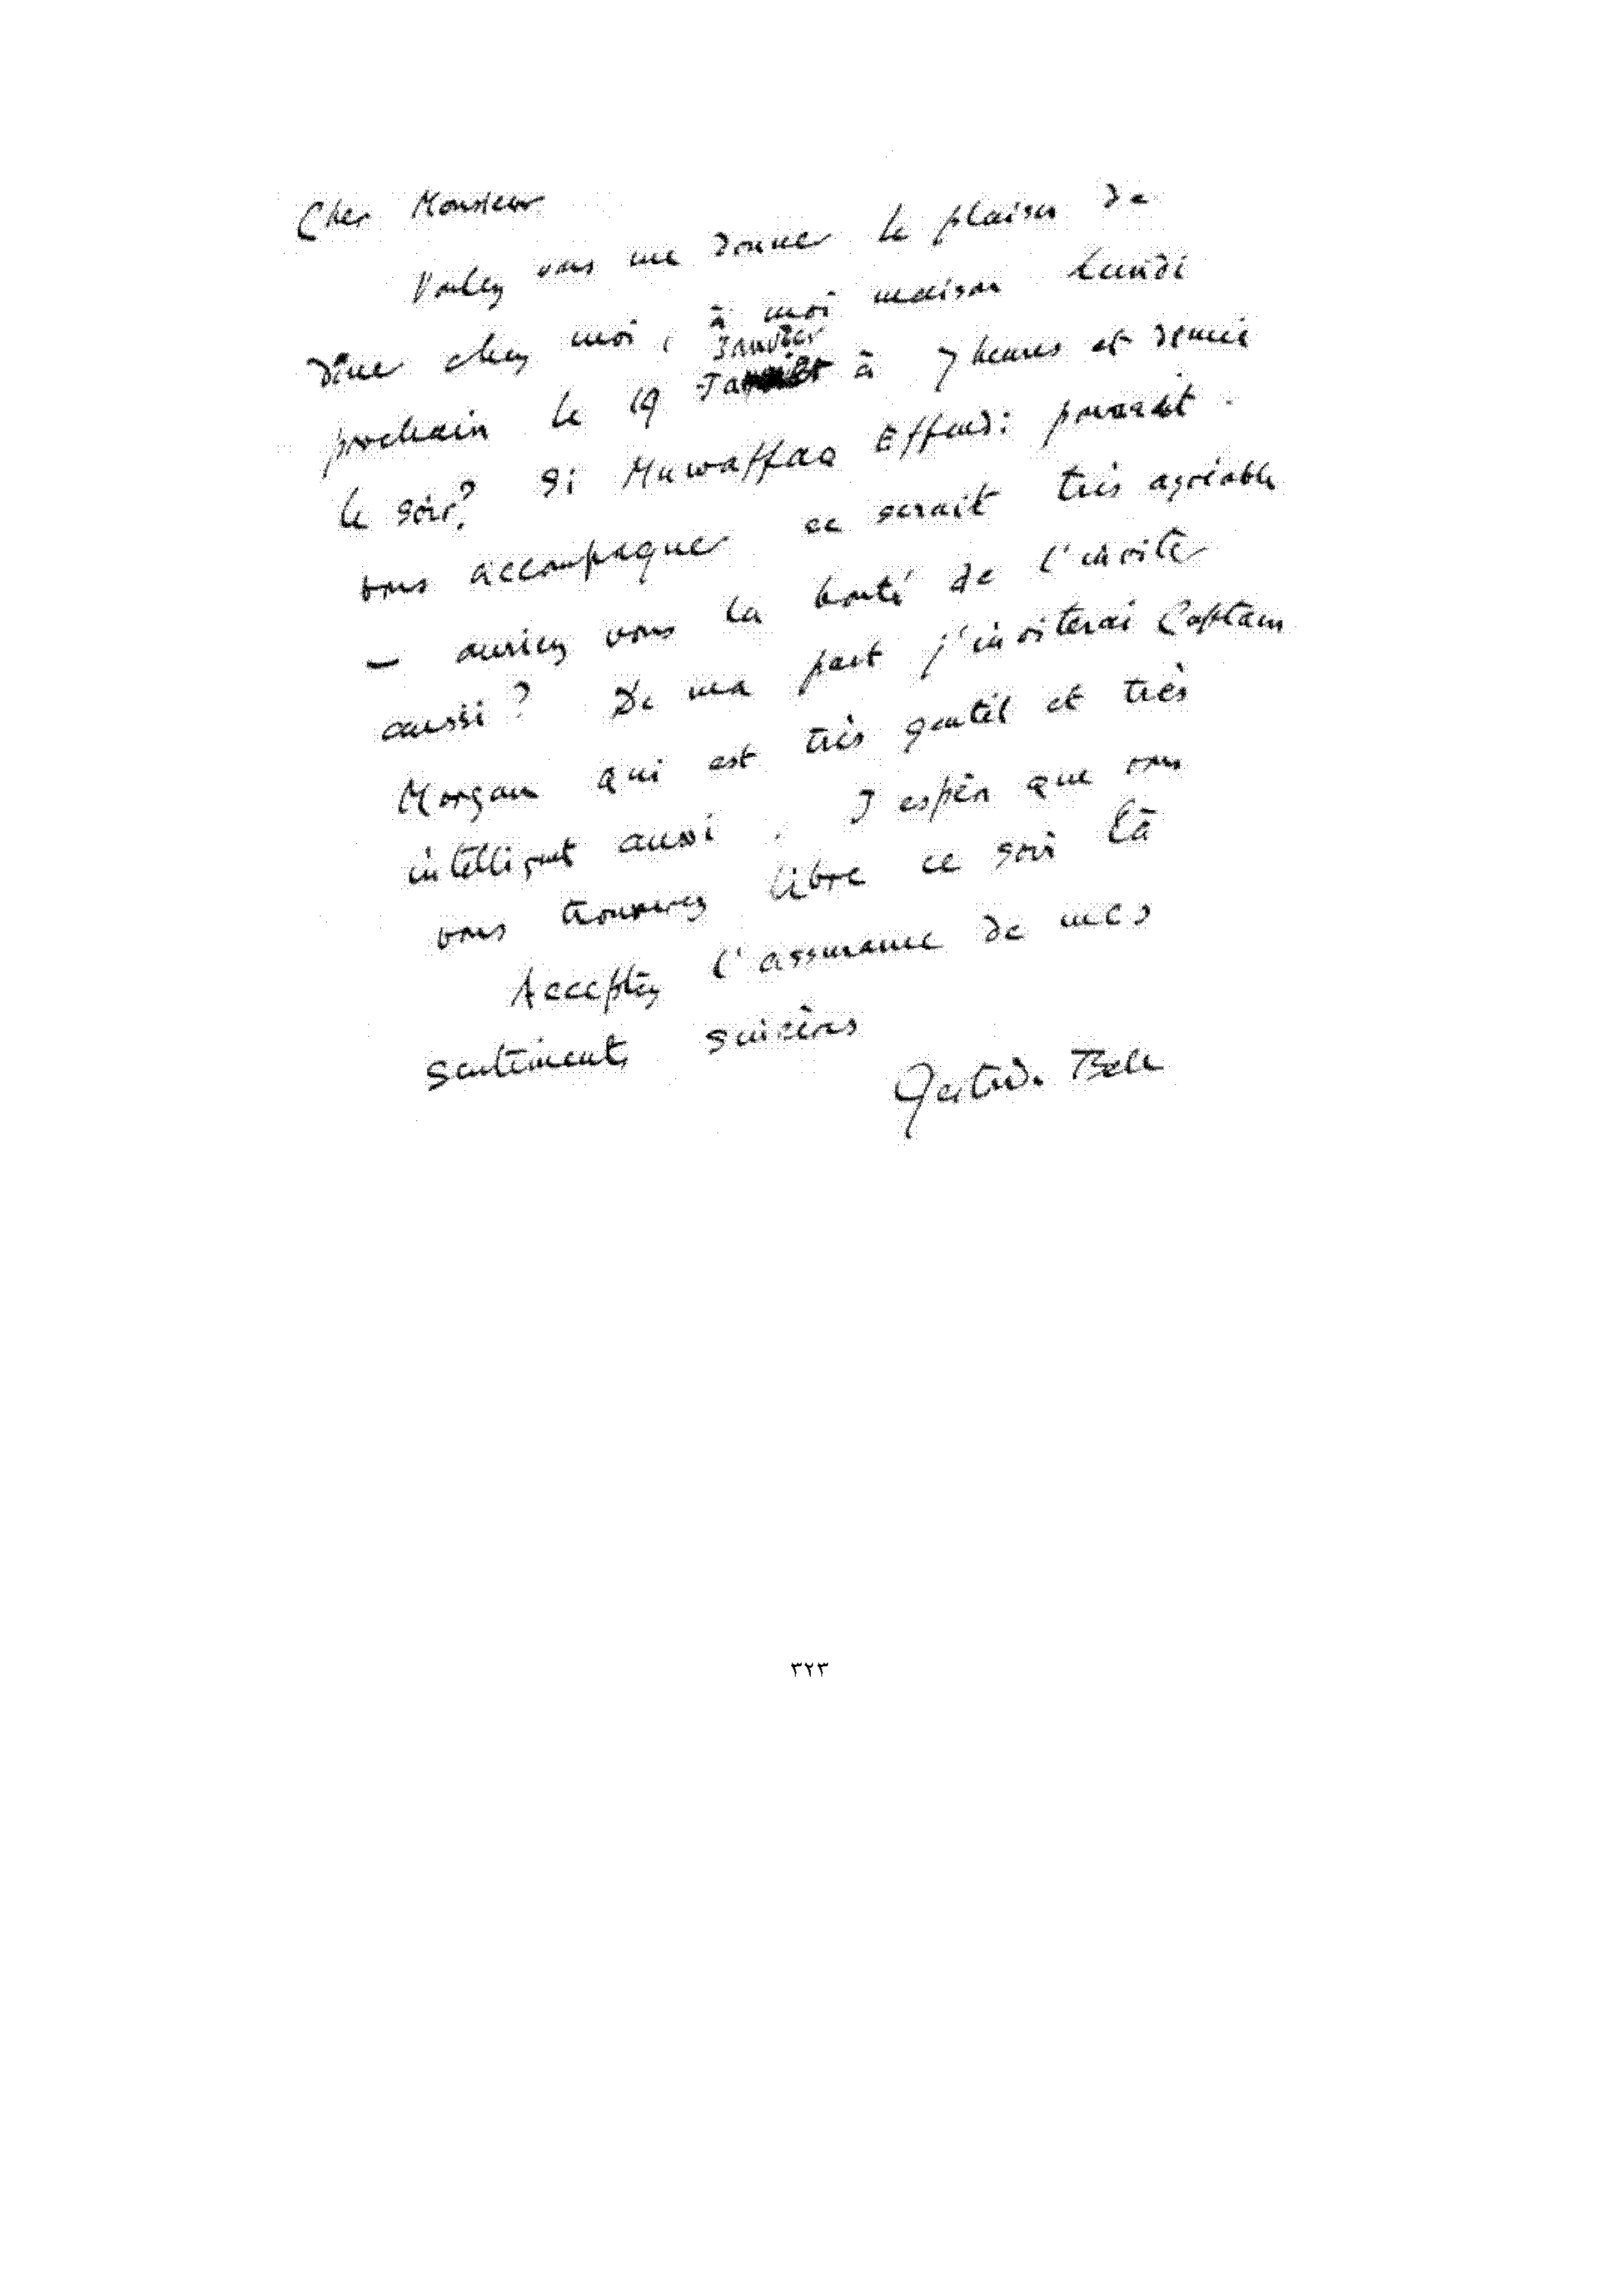 Cher Monsieur
Voulez vous me donner le plaisir de
dîner chez moi, à moi maison Lundi
prochain le 19 Janvier à 7 heures et demie
le soir? Si Muwaffaq Effendi pouvait
vous accompagner ce serait très agréable
— auriez vous la bonté de l'inviter
aussi? De ma part j'inviterai Captain
Morgan qui est très gentil et très
intelligent aussi. J espère que vous
vous trouverez libre ce soir là
Acceptez l'assurance de mes
sentiments sincères
Gertrude Bell
٣٢٣